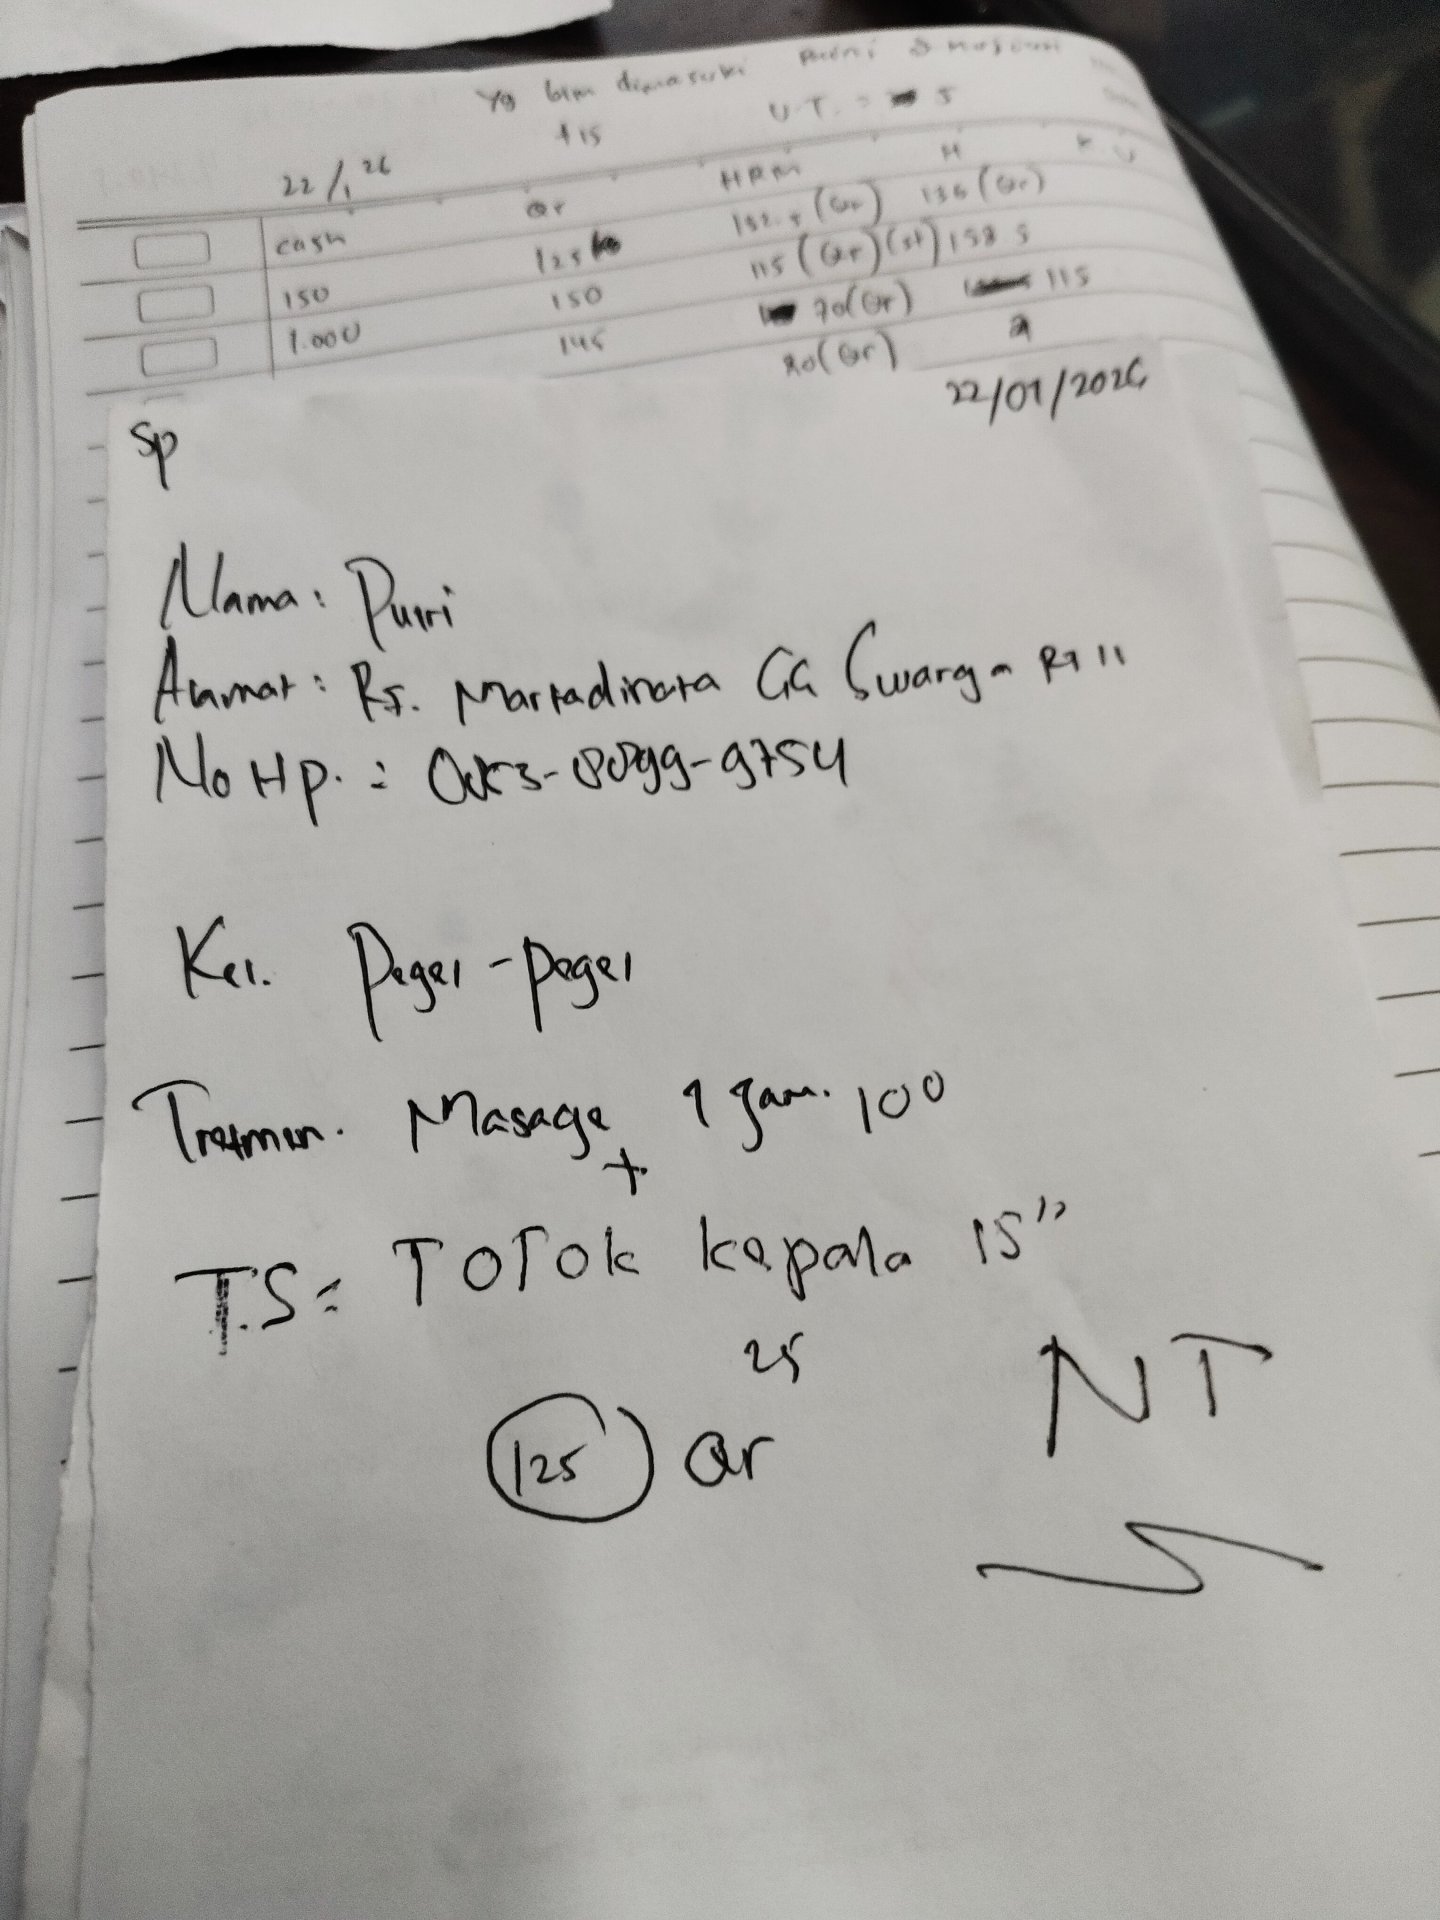 Yg blm dimasuki
+15
U.T. = 5
22/1 26
cash
Qr
HRM
H
K.U
125
152.5 (Qr)
136 (Qr)
150
150
115 (Qr) (st)
158 5
1.000
145
70 (Qr)
115
20 (Qr)
22/01/2026
Sp
Nama: Putri
Alamat: RJ. Martadinata GG Swarga RT 11
No Hp. : 0853-8099-9754
Kel. Pegel-pegel
Tretmen. Masage 1 jam. 100
+
T.S = TOTOk kepala 15"
25
125 Qr
NT